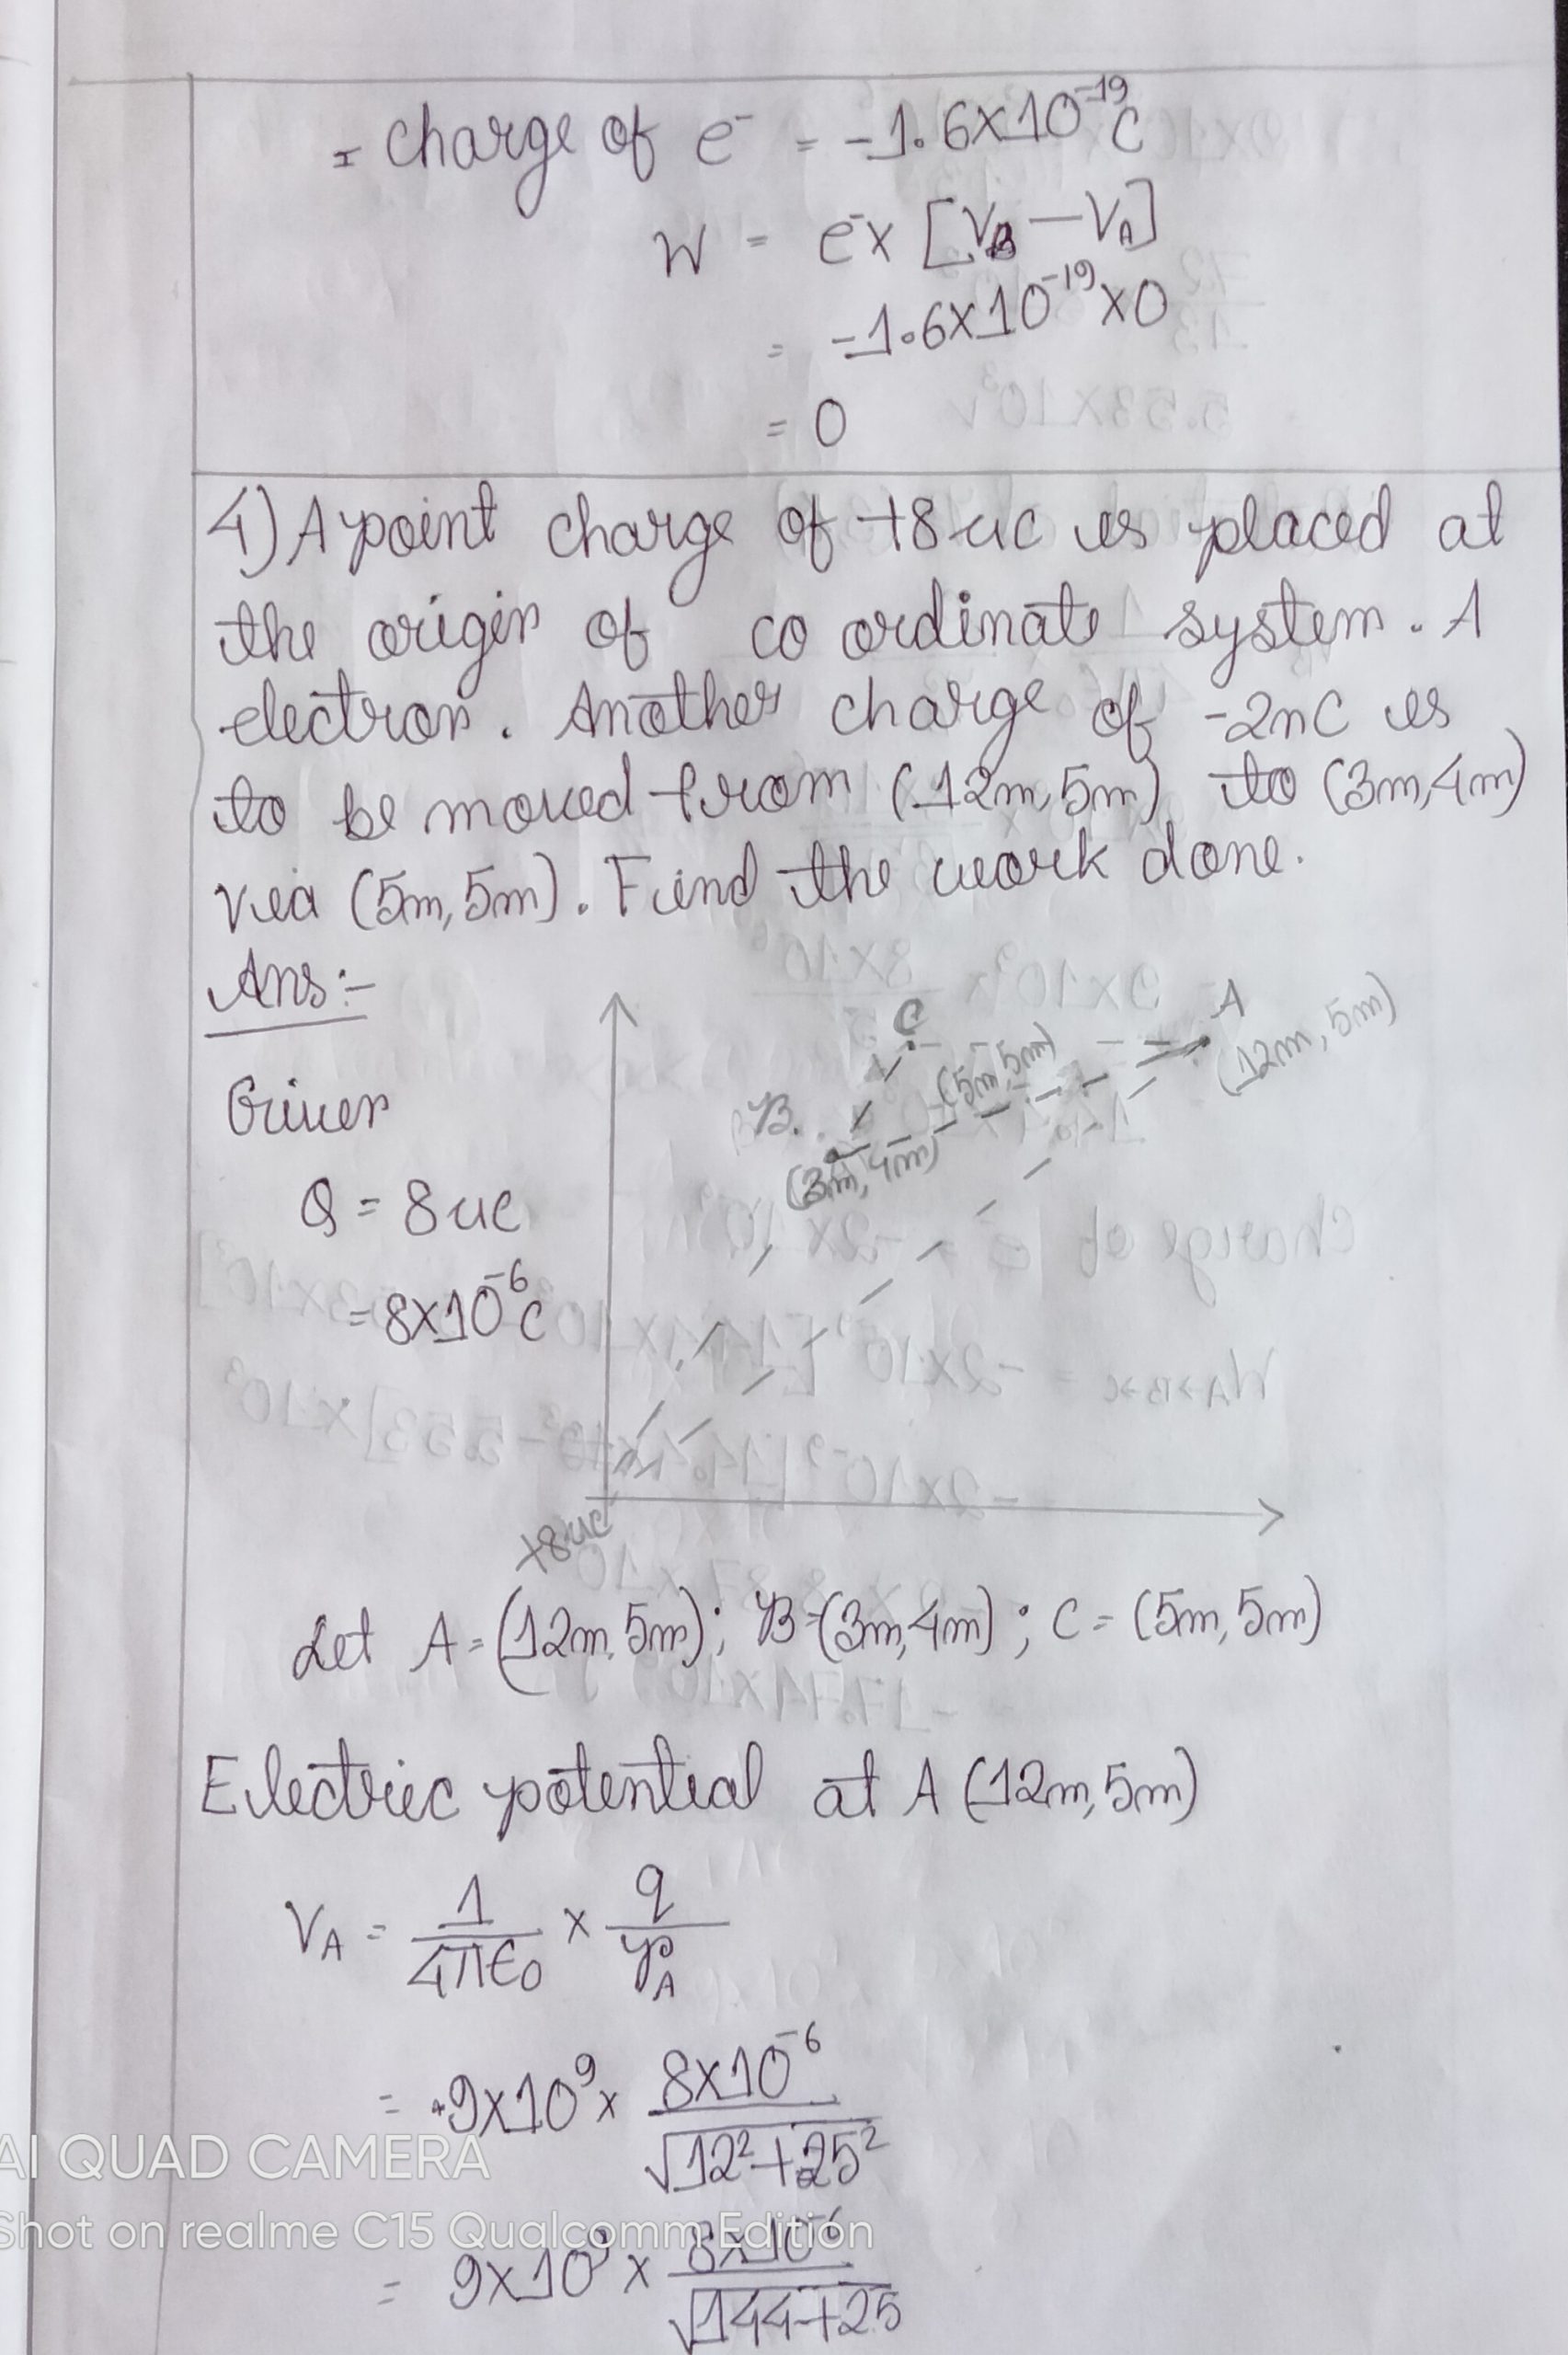 = charge of e⁻ = -1.6×10⁻¹⁹C
W = e⁻× [V_B — V_A]
= -1.6×10⁻¹⁹×0
= 0
4) A point charge of +8uc is placed at
the origin of co ordinate system. A
electron. Another charge of -2nC is
to be moved from (12m,5m) to (3m,4m)
via (5m,5m). Find the work done.
Ans:-
C
A
(12m, 5m)
(5m,5m)
B.
(3m, 4m)
Given
Q = 8uc
= 8×10⁻⁶C
+8uc
Let A = (12m, 5m); B=(3m,4m); C = (5m,5m)
Electric potential at A (12m,5m)
V_A = 1/4πϵ₀ × q/r_A
= 9×10⁹ × 8×10⁻⁶/√12²+25²
= 9×10⁹ × 8×10⁻⁶/√144+25
AI QUAD CAMERA
Shot on realme C15 Qualcomm Edition